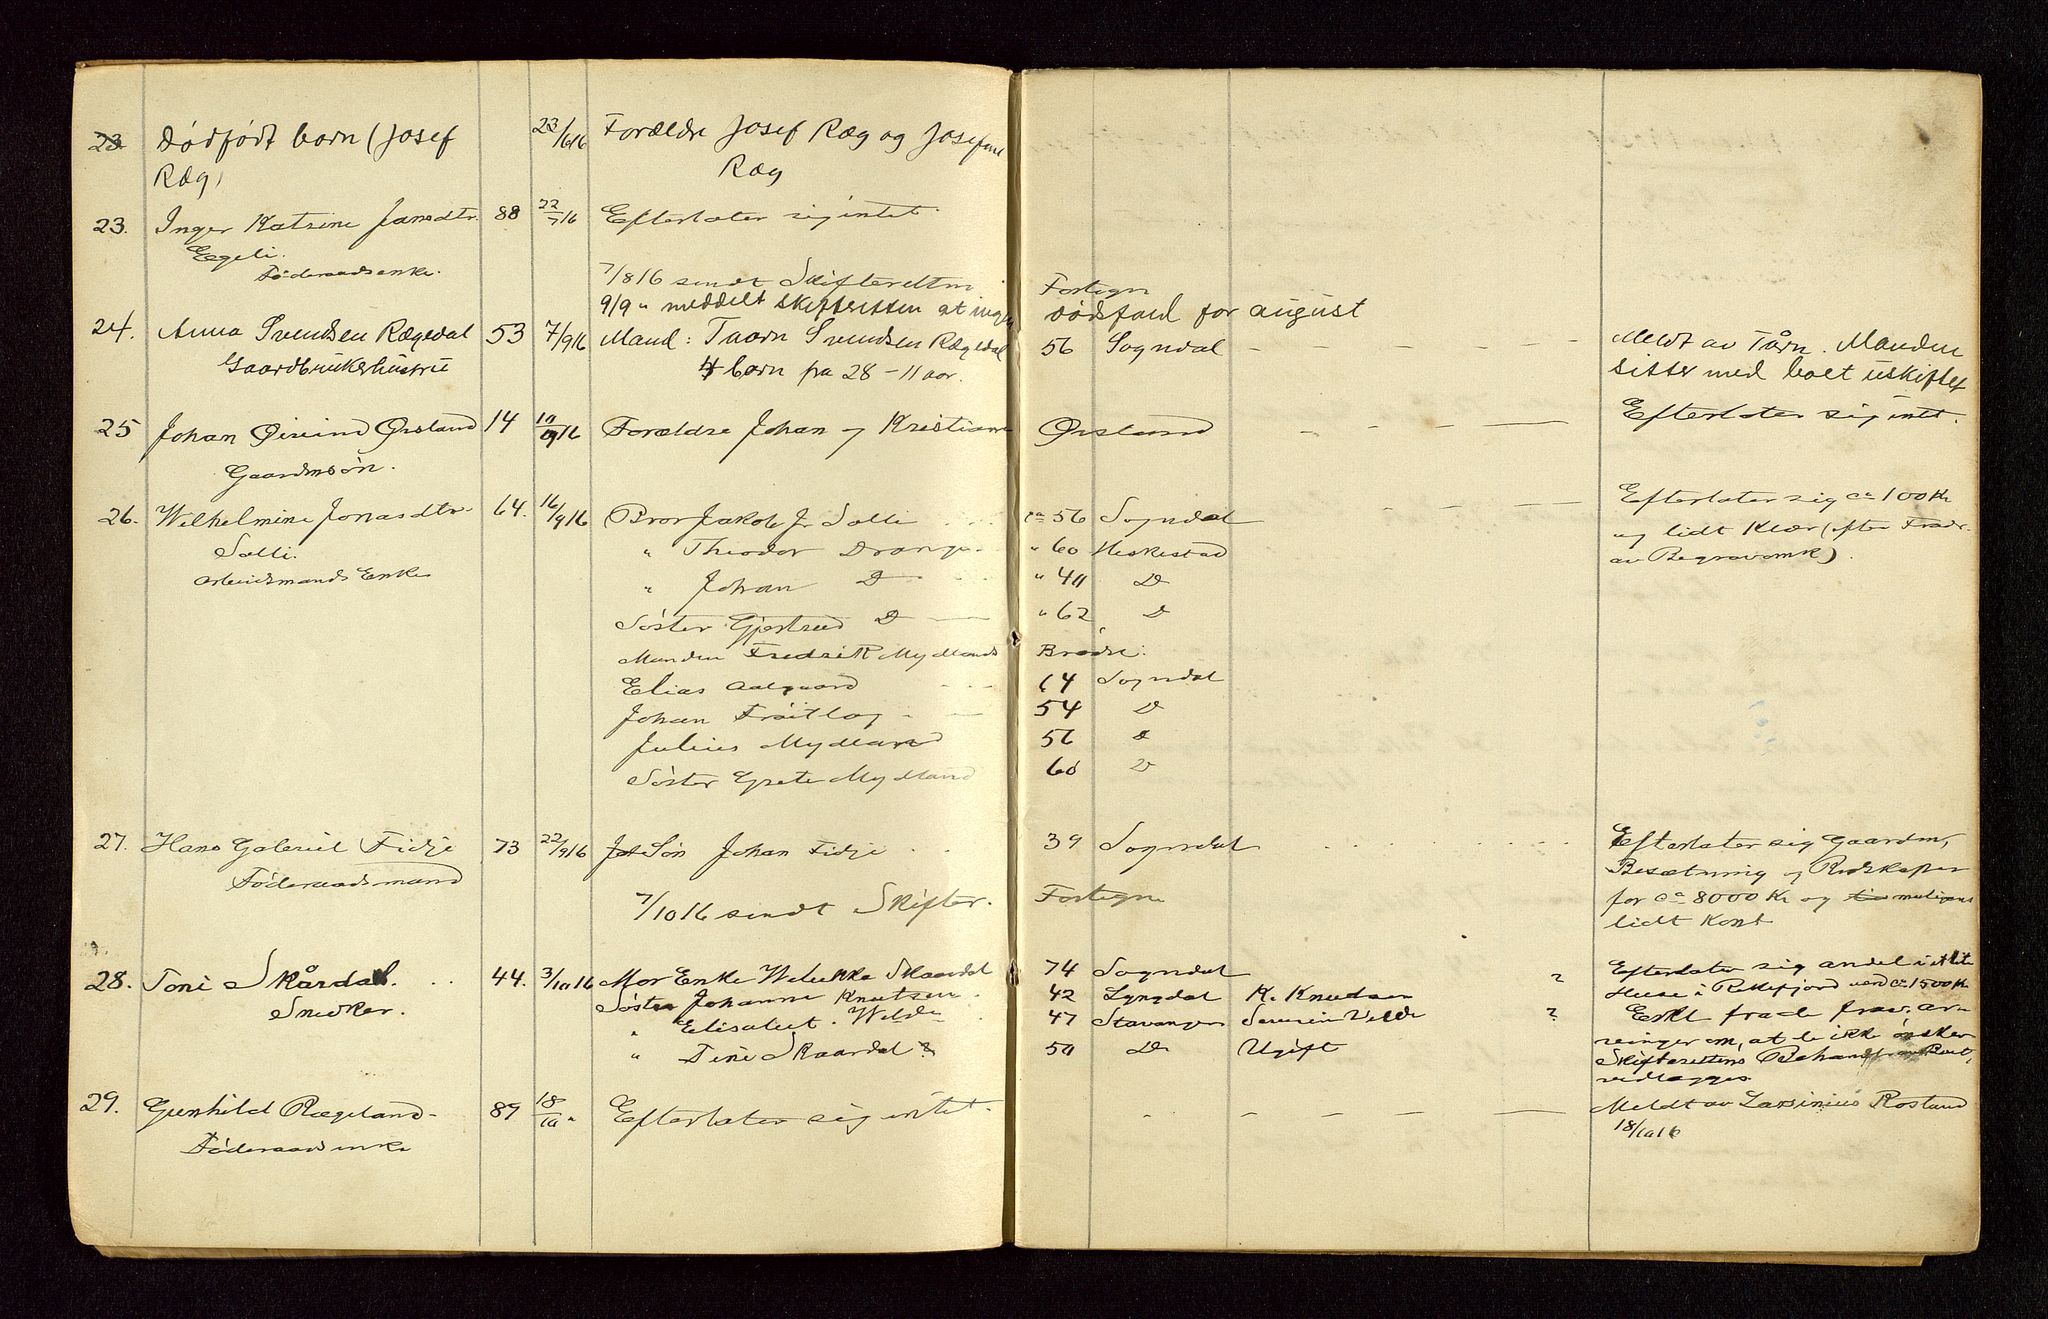 23. Dødfødt barn (Josef 23/6 16 Forældre Josef Ræg og Josefine
Ræg) Ræg
23. Inger Katrine Jansdtr. 88 22/7 16 Efterlater sig intet.
Egeli.
Föderaadsenke.
7/8 16 sendt Skifteretten Fortegn
9/9 " meddelt skifteretten at ingen dødsfald for august
24. Anna Svendsen Rægedal 53 7/9 16 Mand: Taarn Svendsen Rægedal 56 Sogndal - - - - - Meldt av Tårn. Manden
Gaardbrukerhustru 4 barn fra 28 - 11 aar. sitter med boet uskiftet
25 Johan Øivind Ørsland 14 10/9 16 Forældre Johan og Kristiane Ørsland - - - Efterlater sig intet.
Gaardmsön.
26. Wilhelmine Jonasdtr. 64. 16/9 16 Bror Jakob Jr Solli ca 56 Sogndal - - - Efterlater sig ca 100 Kr
Solli. " Theodor Drange " 60 Heskestad og lidt Klær (efter Fradr.
Arbeidsmands Enke " Johan D " 40 D av Begravomk).
Söster Gjertrud D " 62 D
Manden Fredrik Mydlands Brödre:
Elias Aalgaard 64 Sogndal
Johan Fröitlog 54 D
Julius Mydland 56 D
Söster Grete Mydland 60 D
27. Hans Gabriel Fidje 73 22/9 16 Sön Johan Fidje 39 Sogndal Efterlater sig Gaardm,
Föderaadsmand Besætning og Redskaper
7/10 16 sendt Skifter. Fortegn for ca 8000 Kr og muligens
lidt Kont
28. Toni Skårdal. 44. 3/10 16 Mor Enke Skaardal 74 Sogndal ? Efterlater sig andel i et lite
Snedker. Söster Johanne Knutsen 42 Lyngdal K. Knudsen Huse i Rekefjord værd ca 1500 Kr
" Elisabet Velde 47 Stavanger Severin Velde ?
" Tini Skaardal 50 D Ugift om, at de ikke önsker
Skifterettens
vedlægges.
29. Gunhild Rægeland 87 18/10 " Efterlater sig intet. - - - - - Meldt av Larsinius Rosland
Föderaadsenke 18/10 16